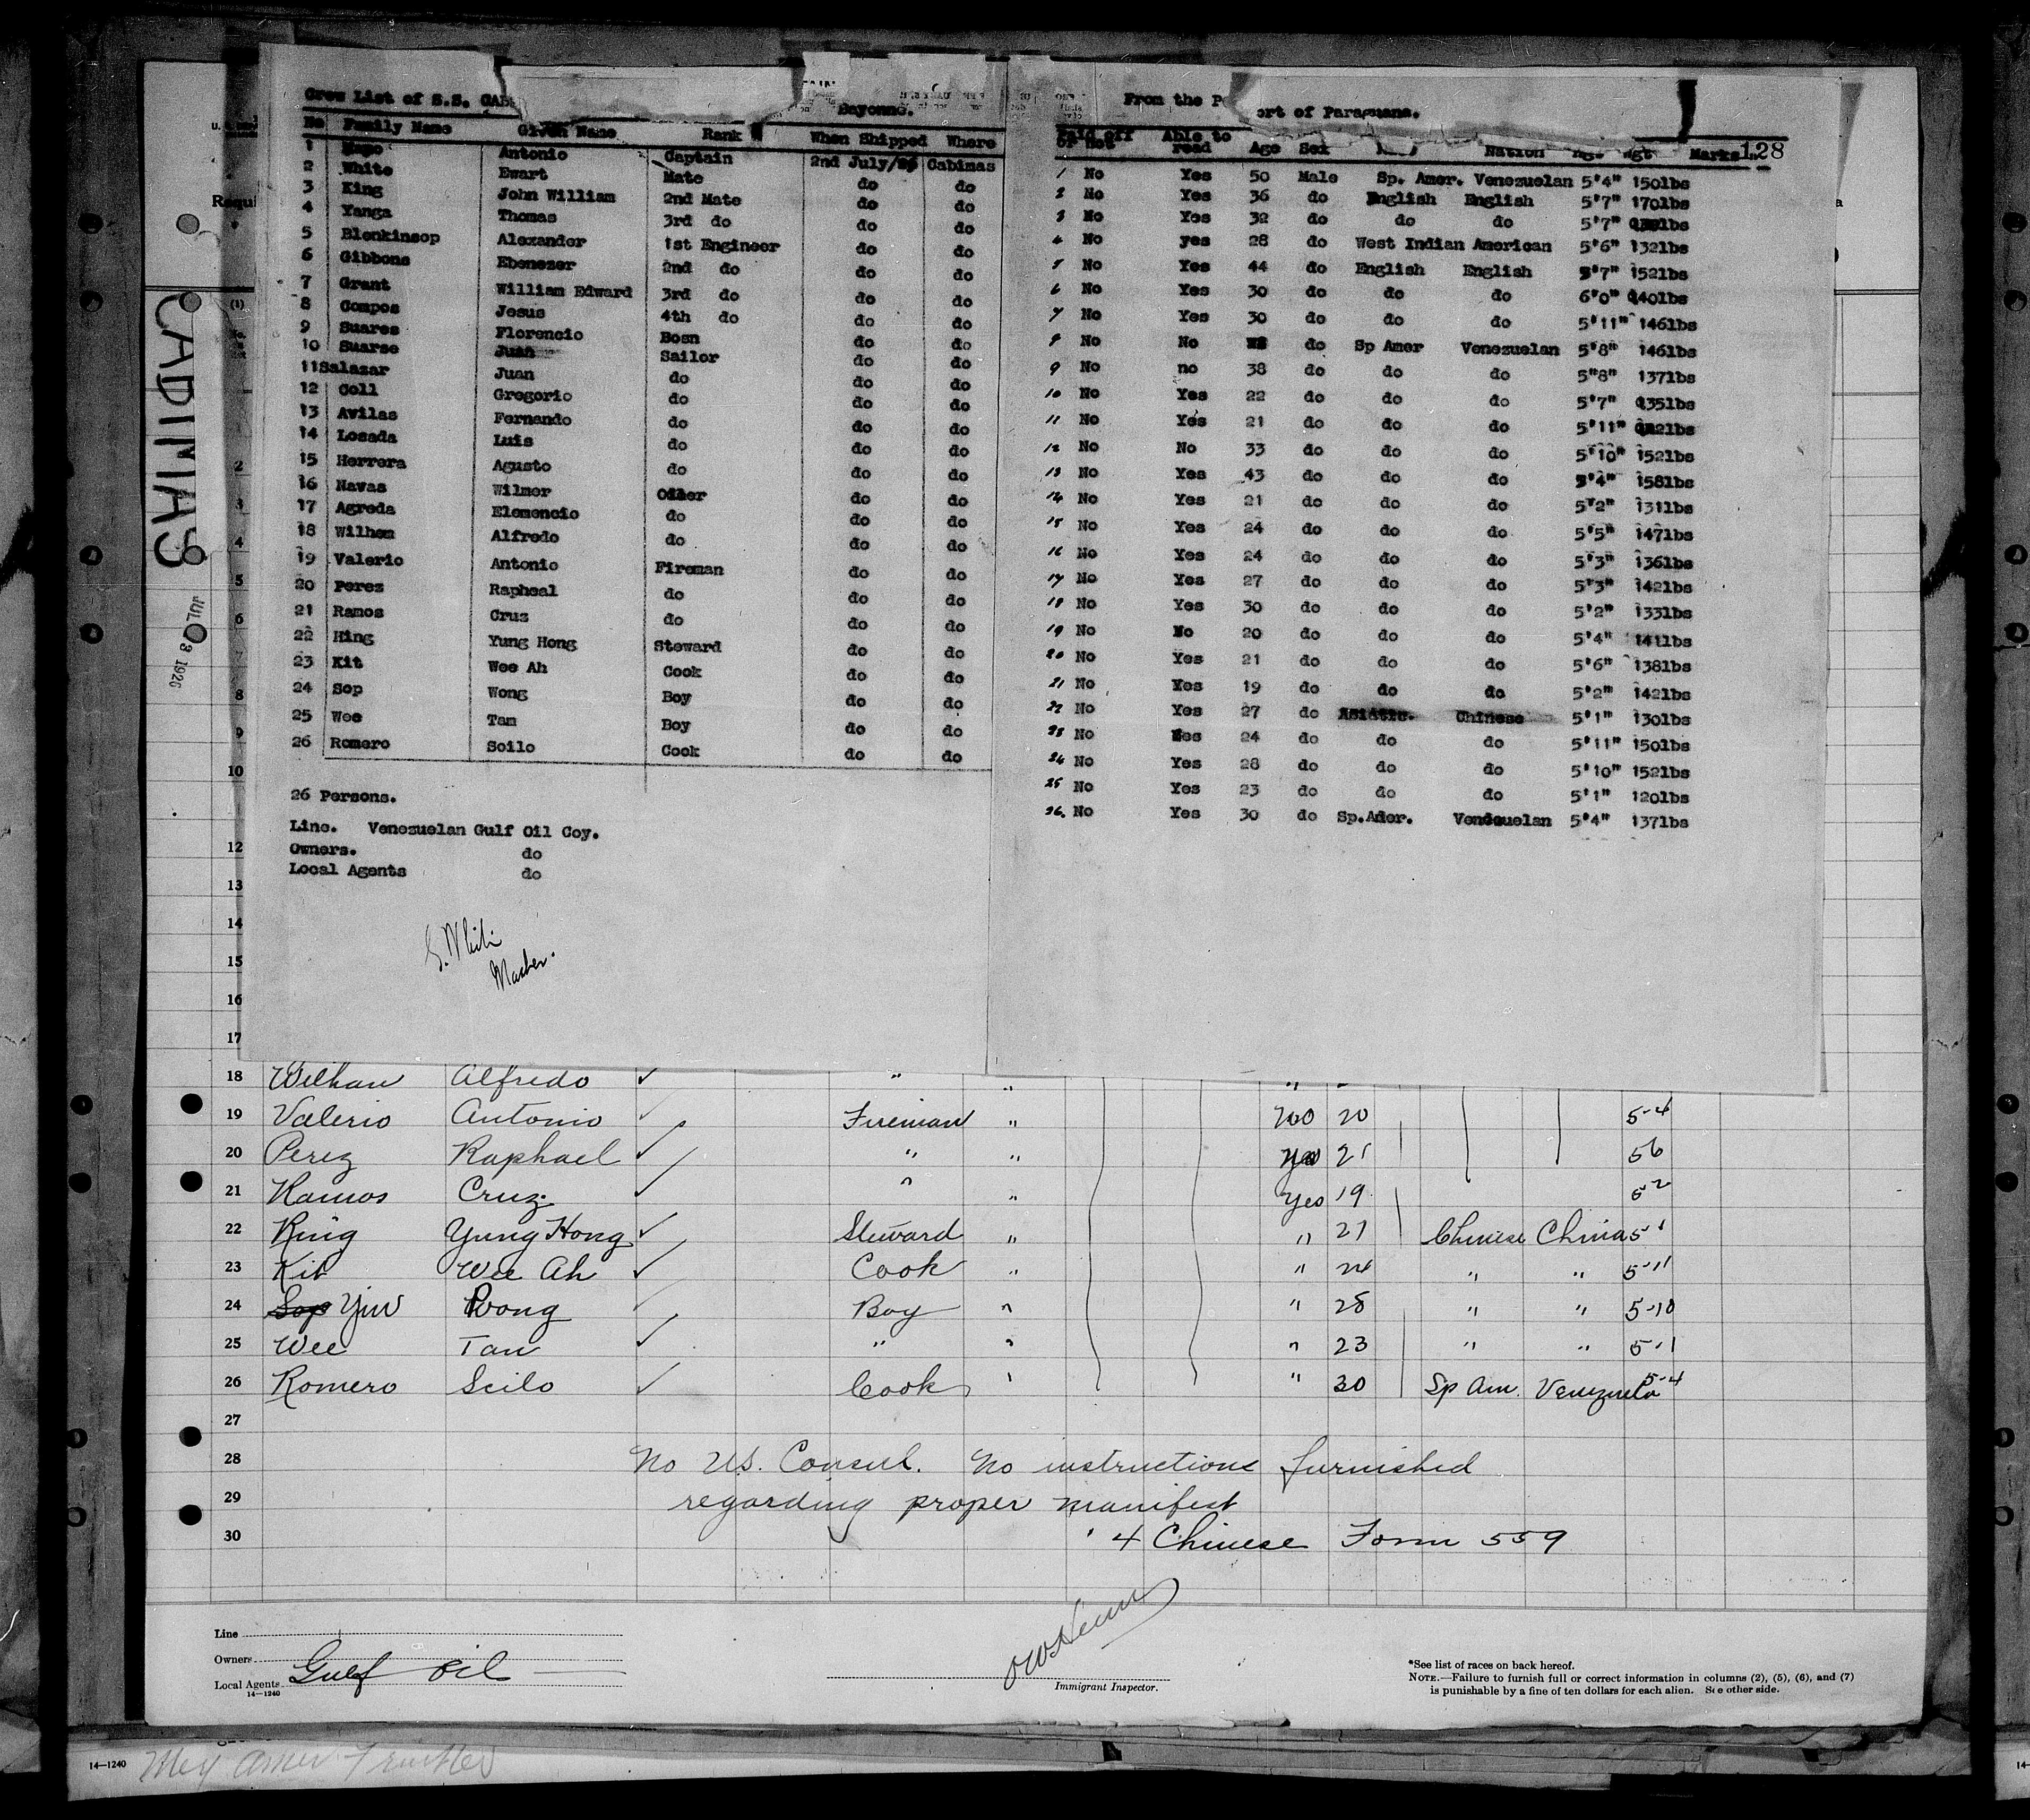 Crew List of S.S. CAB
Bayonne.
From the P ort of Paraguana.
No Family Name Given Name Rank When Shipped Where Paid off or not Able to read Age Sex Nation Hgt Wgt Marks
128
1 Antonio Captain 2nd July/26 Cabimas 1 No Yes 50 Male Sp. Amer. Venezuelan 5'4" 150lbs
2 White Ewart Mate do do 2 No Yes 36 do English English 5'7" 170lbs
3 King John William 2nd Mate do do 3 No Yes 32 do do do 5'7" lbs
4 Yanga Thomas 3rd do do do 4 No yes 28 do West Indian American 5'6" 132lbs
5 Blenkinsop Alexander 1st Engineer do do 5 No Yes 44 do English English 5'7" 152lbs
6 Gibbons Ebenezer 2nd do do do 6 No Yes 30 do do do 6'0" 140lbs
7 Grant William Edward 3rd do do do 7 No Yes 30 do do do 5'11" 146lbs
8 Compos Jesus 4th do do do 8 No No do Sp Amer Venezuelan 5'8" 146lbs
9 Suares Florencio Bosn do do 9 No no 38 do do do 5"8" 137lbs
10 Suarse Juan Sailor do do 10 No Yes 22 do do do 5'7" 135lbs
11 Salazar Juan do do do 11 No Yes 21 do do do 5'11" lbs
12 Coll Gregorio do do do 12 No No 33 do do do 5'10" 152lbs
13 Avilas Fernando do do do 13 No Yes 43 do do do 5'4" 158lbs
14 Losada Luis do do do 14 No Yes 21 do do do 5'2" 131lbs
15 Herrera Agusto do do do 15 No Yes 24 do do do 5'5" 147lbs
16 Navas Wilmer Oiler do do 16 No Yes 24 do do do 5'3" 136lbs
17 Agreda Elemencio do do do 17 No Yes 27 do do do 5'3" 142lbs
18 Wilhem Alfredo do do do 18 No Yes 30 do do do 5'2" 133lbs
19 Valerio Antonio Fireman do do 19 No No 20 do do do 5'4" 141lbs
20 Perez Rapheal do do do 20 No Yes 21 do do do 5'6" 138lbs
21 Ramos Cruz do do do 21 No Yes 19 do do do 5'2" 142lbs
22 Hing Yung Hong Steward do do 22 No Yes 27 do Asiatic. Chinese 5'1" 130lbs
23 Kit Wee Ah Cook do do 23 No Yes 24 do do do 5'11" 150lbs
24 Sop Wong Boy do do 24 No Yes 28 do do do 5'10" 152lbs
25 Wee Tam Boy do do 25 No Yes 23 do do do 5'1" 120lbs
26 Romero Soilo Cook do do 26. No Yes 30 do Sp.Amer. Venezuelan 5'4" 137lbs
26 Persons.
Line. Venezuelan Gulf Oil Coy.
Owners. do
Local Agents do
Master.
CABIMAS
JUL 23 1926
U. S.
Requi
(1)
No.
2
3
4
5
6
7
8
9
10
12
13
14
15
16
17
18 Wilhem Alfredo ✓ " "
19 Valerio Antonio ✓ Fireman " No 20 5-4
20 Perez Raphael ✓ " " Yes 21 5 6
21 Ramos Cruz ✓ " " Yes 19 5 2
22 King Yung Hong ✓ Steward " " 27 Chinese China 5 1
23 Kit Wee Ah ✓ Cook " " 24 " " 5-11
24 Sop Yin Wong ✓ Boy " " 28 " " 5-10
25 Wee Tan ✓ " " " 23 " " 5-1
26 Romero Scilo ✓ Cook " " 30 Sp Am. Venezuela 5-4
27
28 No U.S. Consul. No instructions furnished
29 regarding proper manifest
30 4 Chinese Form 559
Line
Owners
Local Agents Gulf Oil
14—1240
Immigrant Inspector.
*See list of races on back hereof.
NOTE.—Failure to furnish full or correct information in columns (2), (5), (6), and (7)
is punishable by a fine of ten dollars for each alien. See other side.
14—1240 Mex Amer
14-